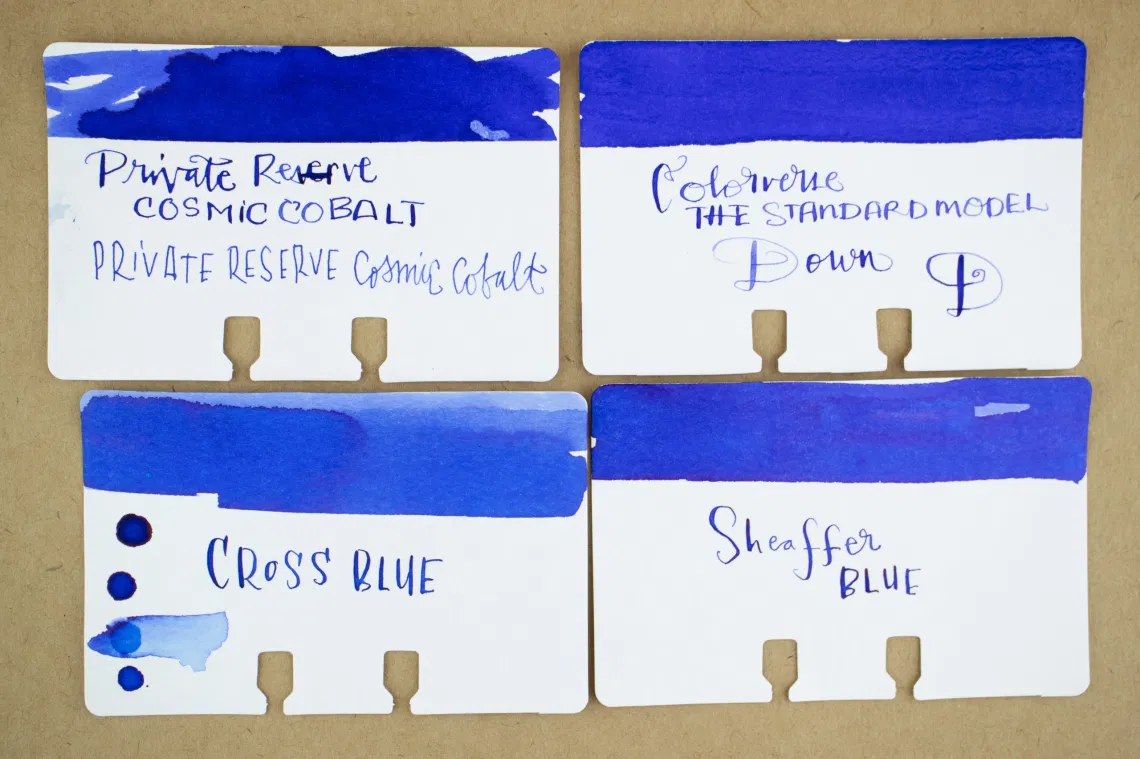 Private Reserve
COSMIC COBALT
PRIVATE RESERVE Cosmic Cobalt
Colorverse
THE STANDARD MODEL
Down D
CROSS BLUE
Sheaffer
BLUE